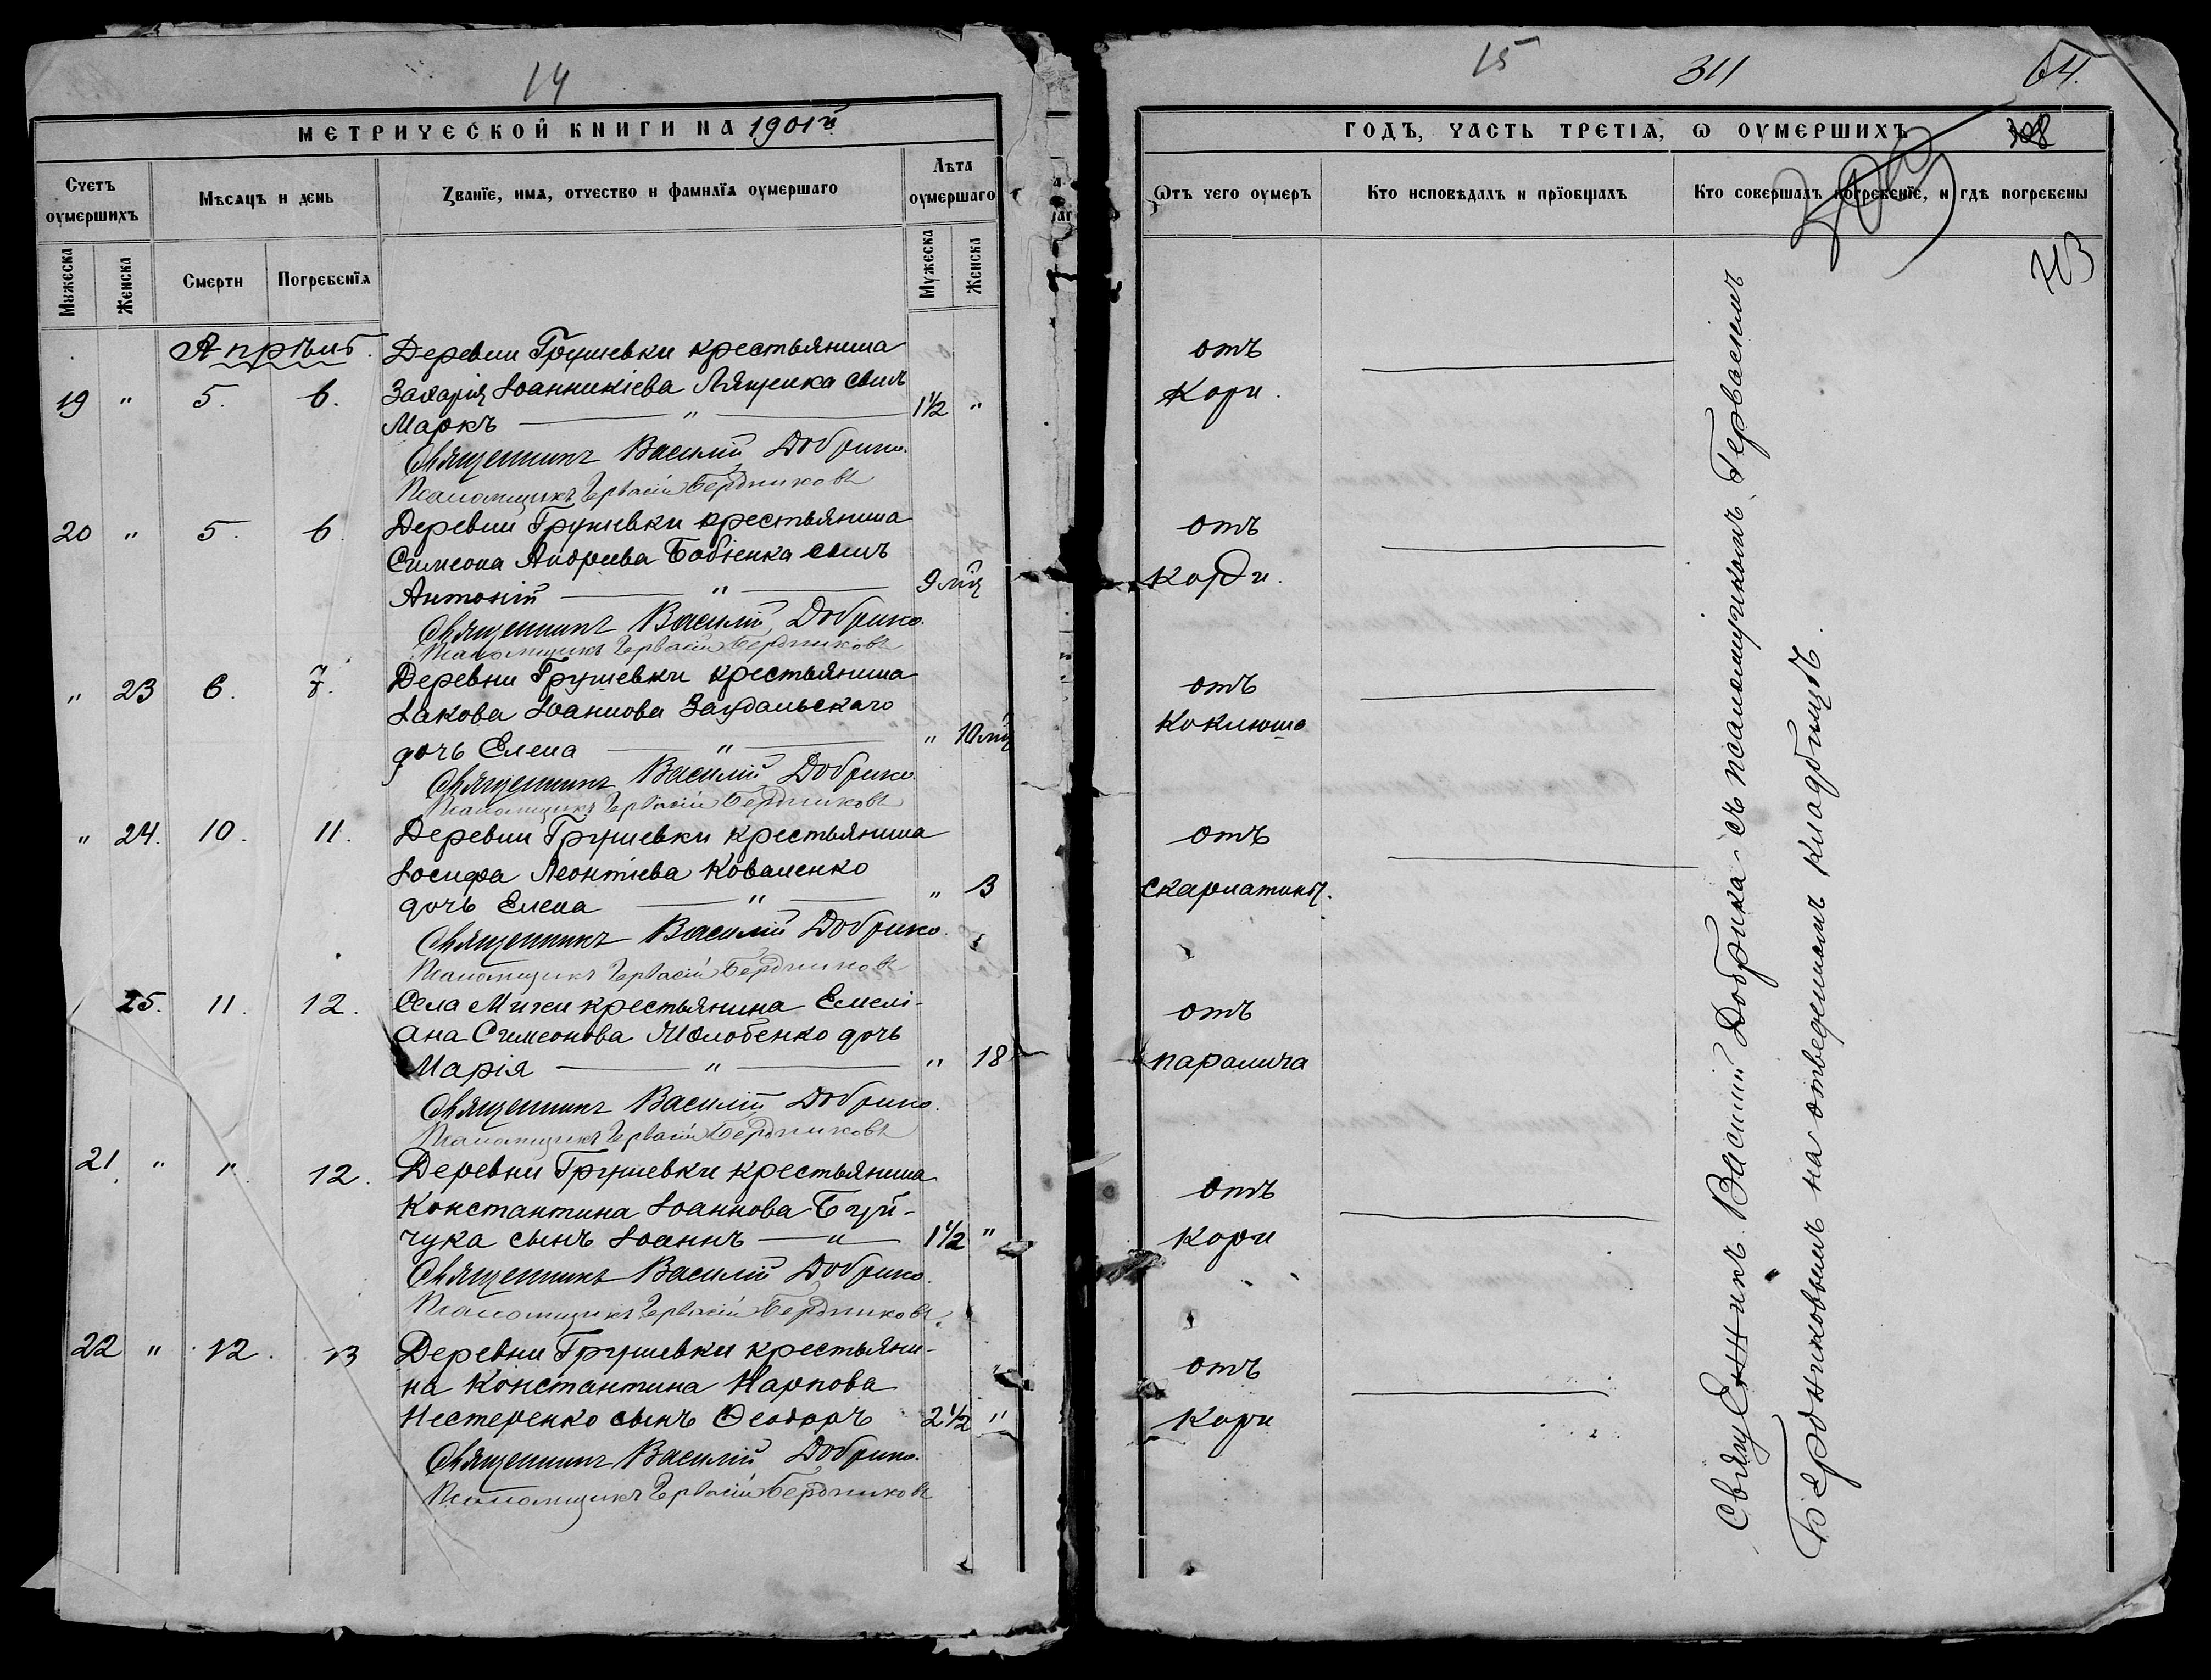 14
МЕТРИЧЕСКОЙ КНИГИ НА 1901й
Счетъ оумершихъ
Мѣсяцъ и день
Званїе, имя, отчество и фамилїя оумершаго
Лѣта оумершаго
Мужеска
Женска
Смерти
Погребенїя
Мужеска
Женска
Апрѣль.
19 " 5. 6.
Деревни Грушевки крестьянина
Захарія Іоанникіева Лященка сынъ
Маркъ — " — 1½ "
Священникъ Василій Добрико.
Псаломщикъ Гервасій Бердниковъ
20 " 5. 6.
Деревни Грушевки крестьянина
Симеона Андреева Бабіенка сынъ
Антоній — " — 9 мц
Священникъ Василій Добрико.
Псаломщикъ Гервасій Бердниковъ
" 23 6. 7.
Деревни Грушевки крестьянина
Іакова Іоаннова Загдальскаго
дочь Елена — " — " 10 мц
Священникъ Василій Добрико.
Псаломщикъ Гервасій Бердниковъ
" 24. 10. 11.
Деревни Грушевки крестьянина
Іосифа Леонтіева Коваленко
дочь Елена — " — " 3
Священникъ Василій Добрико.
Псаломщикъ Гервасій Бердниковъ
25. 11. 12.
Села Мигеи крестьянина Емелі-
ана Симеонова Молобенко дочь
Марія — " — " 18
Священникъ Василій Добрико.
Псаломщикъ Гервасій Бердниковъ
21. " 11. 12.
Деревни Грушевки крестьянина
Константина Іоаннова Буй-
чука сынъ Іоаннъ — " — 1½ "
Священникъ Василій Добрико.
Псаломщикъ Гервасій Бердниковъ.
22 " 12. 13
Деревни Грушевки крестьяни-
на Константина Карпова
Нестеренко сынъ Ѳеодоръ 2½ "
Священникъ Василій Добрико.
Псаломщикъ Гервасій Бердниковъ
15
311
64.
ГОДЪ, ЧАСТЬ ТРЕТІЯ, Ѡ ОУМЕРШИХЪ
308
Ѿтъ чего оумеръ
Кто исповѣдалъ и прїобщалъ
Кто совершалъ погребенїе, и гдѣ погребены
отъ
Кори.
отъ
Кори.
отъ
Коклюша
отъ
скарлатины.
отъ
паралича
отъ
Кори
отъ
Кори
Священникъ Василій Добрика съ псаломщикомъ Гервасіемъ
Бердниковымъ на отведенномъ кладбищѣ.